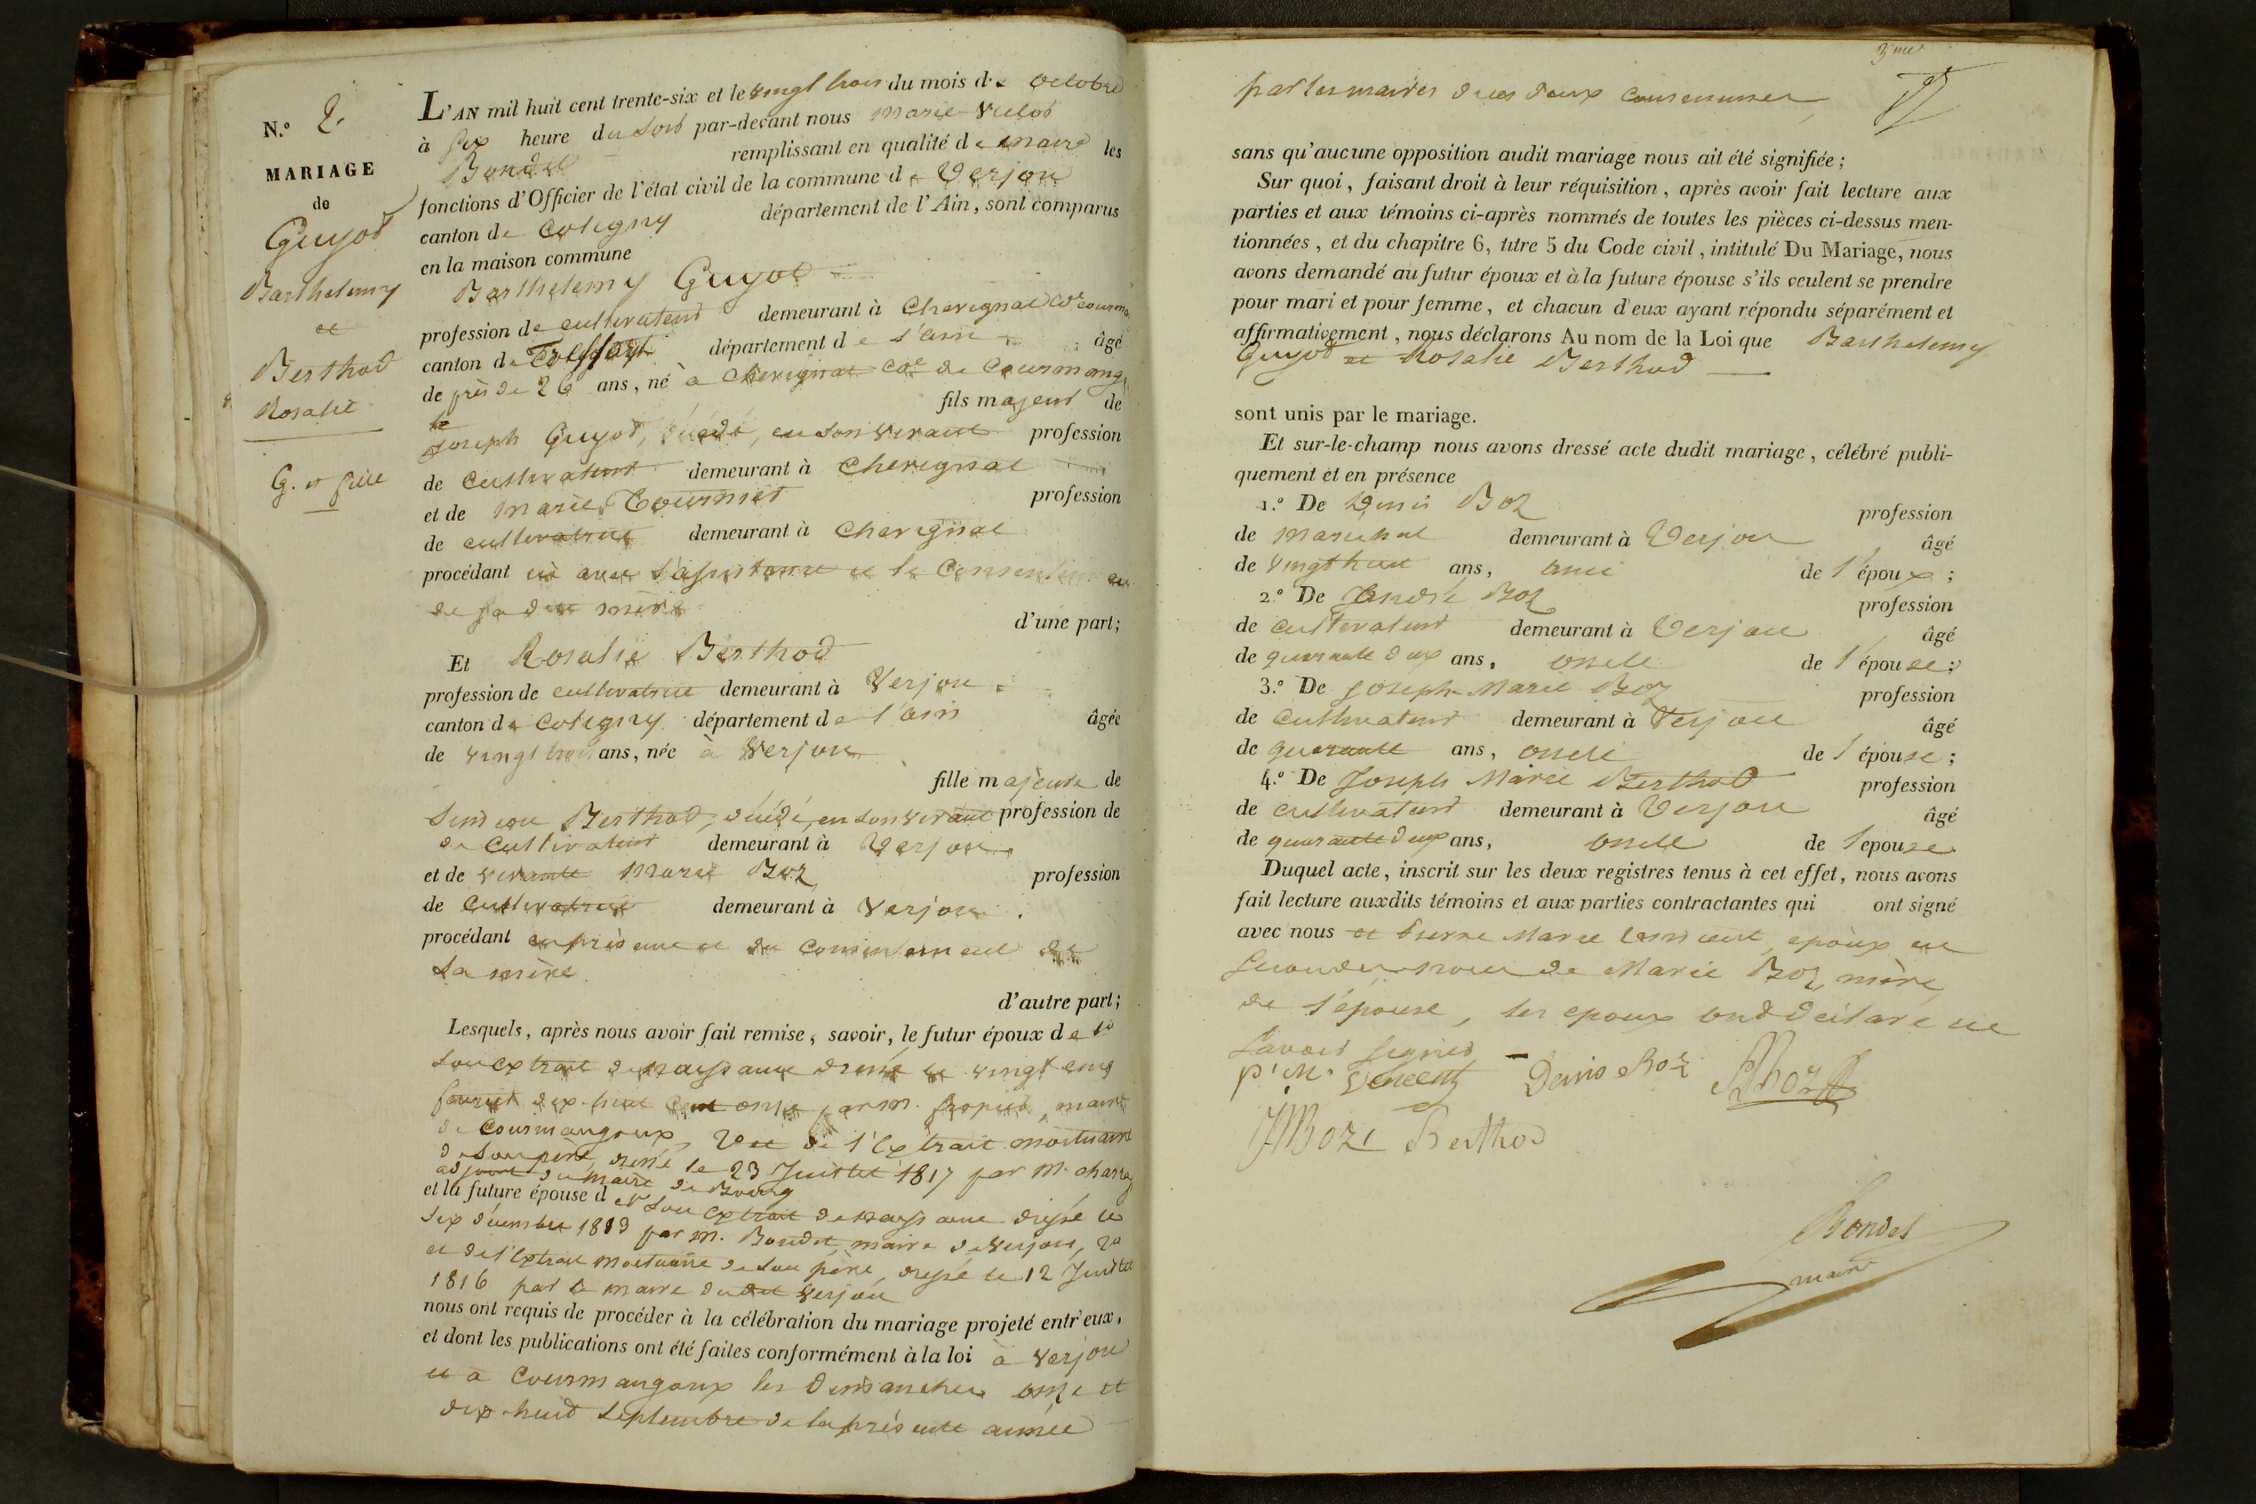 N.º 2.
MARIAGE
de
Guyot
Barthelemy
et
Berthod
Rosalie
G. et fille
L'AN mil huit cent trente-six et le vingt trois du mois de octobre
à six heure du soir par-devant nous Marie-Victor
Bondet remplissant en qualité de maire les
fonctions d'Officier de l'état civil de la commune de Verjon
canton de Coligny département de l'Ain, sont comparus
en la maison commune
Barthelemy Guyot
profession de cultivateur demeurant à Chevignat
canton de Treffort département de l'ain âgé
de près de 26 ans, né à Chevignat Cne de Courmang
fils majeur de
Joseph Guyot, décédé, en son vivant profession
de cultivateur demeurant à Chevignat
et de Marie Tournier profession
de cultivatrice demeurant à Chevignat
procédant avec l'assistance et le Consentement
de sa dite mère
d'une part;
Et Rosalie Berthod
profession de cultivatrice demeurant à Verjon
canton de Coligny département de l'ain âgée
de vingt trois ans, née à Verjon
fille majeure de
Simeon Berthod, décédé, en son vivant profession de
de cultivateur demeurant à Verjon
et de vivante Marie Boz profession
de cultivatrice demeurant à Verjon.
procédant en présence et du consentement de
sa mère
d'autre part;
Lesquels, après nous avoir fait remise, savoir, le futur époux de 1º
son extrait de naissance dressé le vingt cinq
dix-huit cent onze par M. maire
de Courmangoux, 2º et de l'extrait mortuaire
de son père, dressé le 23 Juillet 1817 par M.
adjoint du maire de Bourg
et la future épouse d 1º son extrait de naissance dressé le
six décembre 1813 par M. Bondet, maire de Verjon, 2º
et de l'extrait mortuaire de son père, dressé le 12 Juillet
1816 par le maire dudit Verjon
nous ont requis de procéder à la célébration du mariage projeté entr'eux,
et dont les publications ont été faites conformément à la loi à Verjon
et à Courmangoux les Dimanches onze et
dix-huit septembre de la présente année
3me
par les maires de ces deux communes
sans qu'aucune opposition audit mariage nous ait été signifiée;
Sur quoi, faisant droit à leur réquisition, après avoir fait lecture aux
parties et aux témoins ci-après nommés de toutes les pièces ci-dessus men-
tionnées, et du chapitre 6, titre 5 du Code civil, intitulé Du Mariage, nous
avons demandé au futur époux et à la future épouse s'ils veulent se prendre
pour mari et pour femme, et chacun d'eux ayant répondu séparément et
affirmativement, nous déclarons Au nom de la Loi que Barthelemy
Guyot et Rosalie Berthod
sont unis par le mariage.
Et sur-le-champ nous avons dressé acte dudit mariage, célébré publi-
quement et en présence
1.º De Denis Boz profession
de marechal demeurant à Verjon âgé
de vingt huit ans, ami de l'époux;
2.º De André Boz profession
de cultivateur demeurant à Verjon âgé
de quarante deux ans, oncle de l'épouse;
3.º De Joseph Marie Boz profession
de cultivateur demeurant à Verjon âgé
de quarante ans, oncle de l'épouse;
4.º De Joseph Marie Berthod profession
de cultivateur demeurant à Verjon âgé
de quarante deux ans, oncle de l'epouse
Duquel acte, inscrit sur les deux registres tenus à cet effet, nous avons
fait lecture auxdits témoins et aux parties contractantes qui ont signé
avec nous et Pierre Marie Vincent, epoux en
secondes noces de Marie Boz, mère
de l'épouse, les epoux ont déclaré ne
savoir signer
p. M. Vincent Denis Boz ABoz
JMBoz Berthod
Bondet
maire